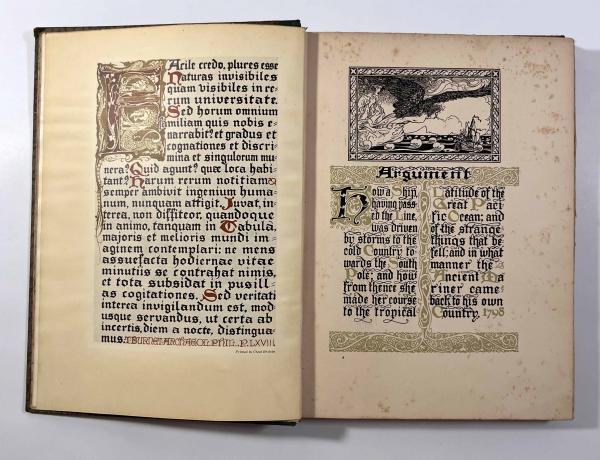 Facile credo, plures esse
Naturas invisibiles
quam visibiles in re-
rum universitate.
Sed horum omnium
familiam quis nobis e-
narrabit? et gradus et
cognationes et discri-
mina et singulorum mu-
nera? Quid agunt? quæ loca habi-
tant? Harum rerum notitiam
semper ambivit ingenium huma-
num, nunquam attigit. Juvat, in-
terea, non diffiteor, quandoque
in animo, tanquam in Tabulâ,
majoris et melioris mundi im-
aginem contemplari: ne mens
assuefacta hodiernae vitae
minutiis se contrahat nimis,
et tota subsidat in pusill-
as cogitationes. Sed veritati
interea invigilandum est, mod-
usque servandus, ut certa ab
incertis, diem a nocte, distingua-
mus. T. BURNET. ARCHÆOL. PHIL., P. LXVIII.
Printed in Great Britain
Argument
How a Ship,
having pass
ed the Line,
was driven
by storms to the
cold Country to
wards the South
Pole; and how
from thence she
made her course
to the tropical
Latitude of the
Great Paci
fic Ocean; and
of the strange
things that be
fell; and in what
manner the
Ancient Ma
riner came
back to his own
Country. 1798